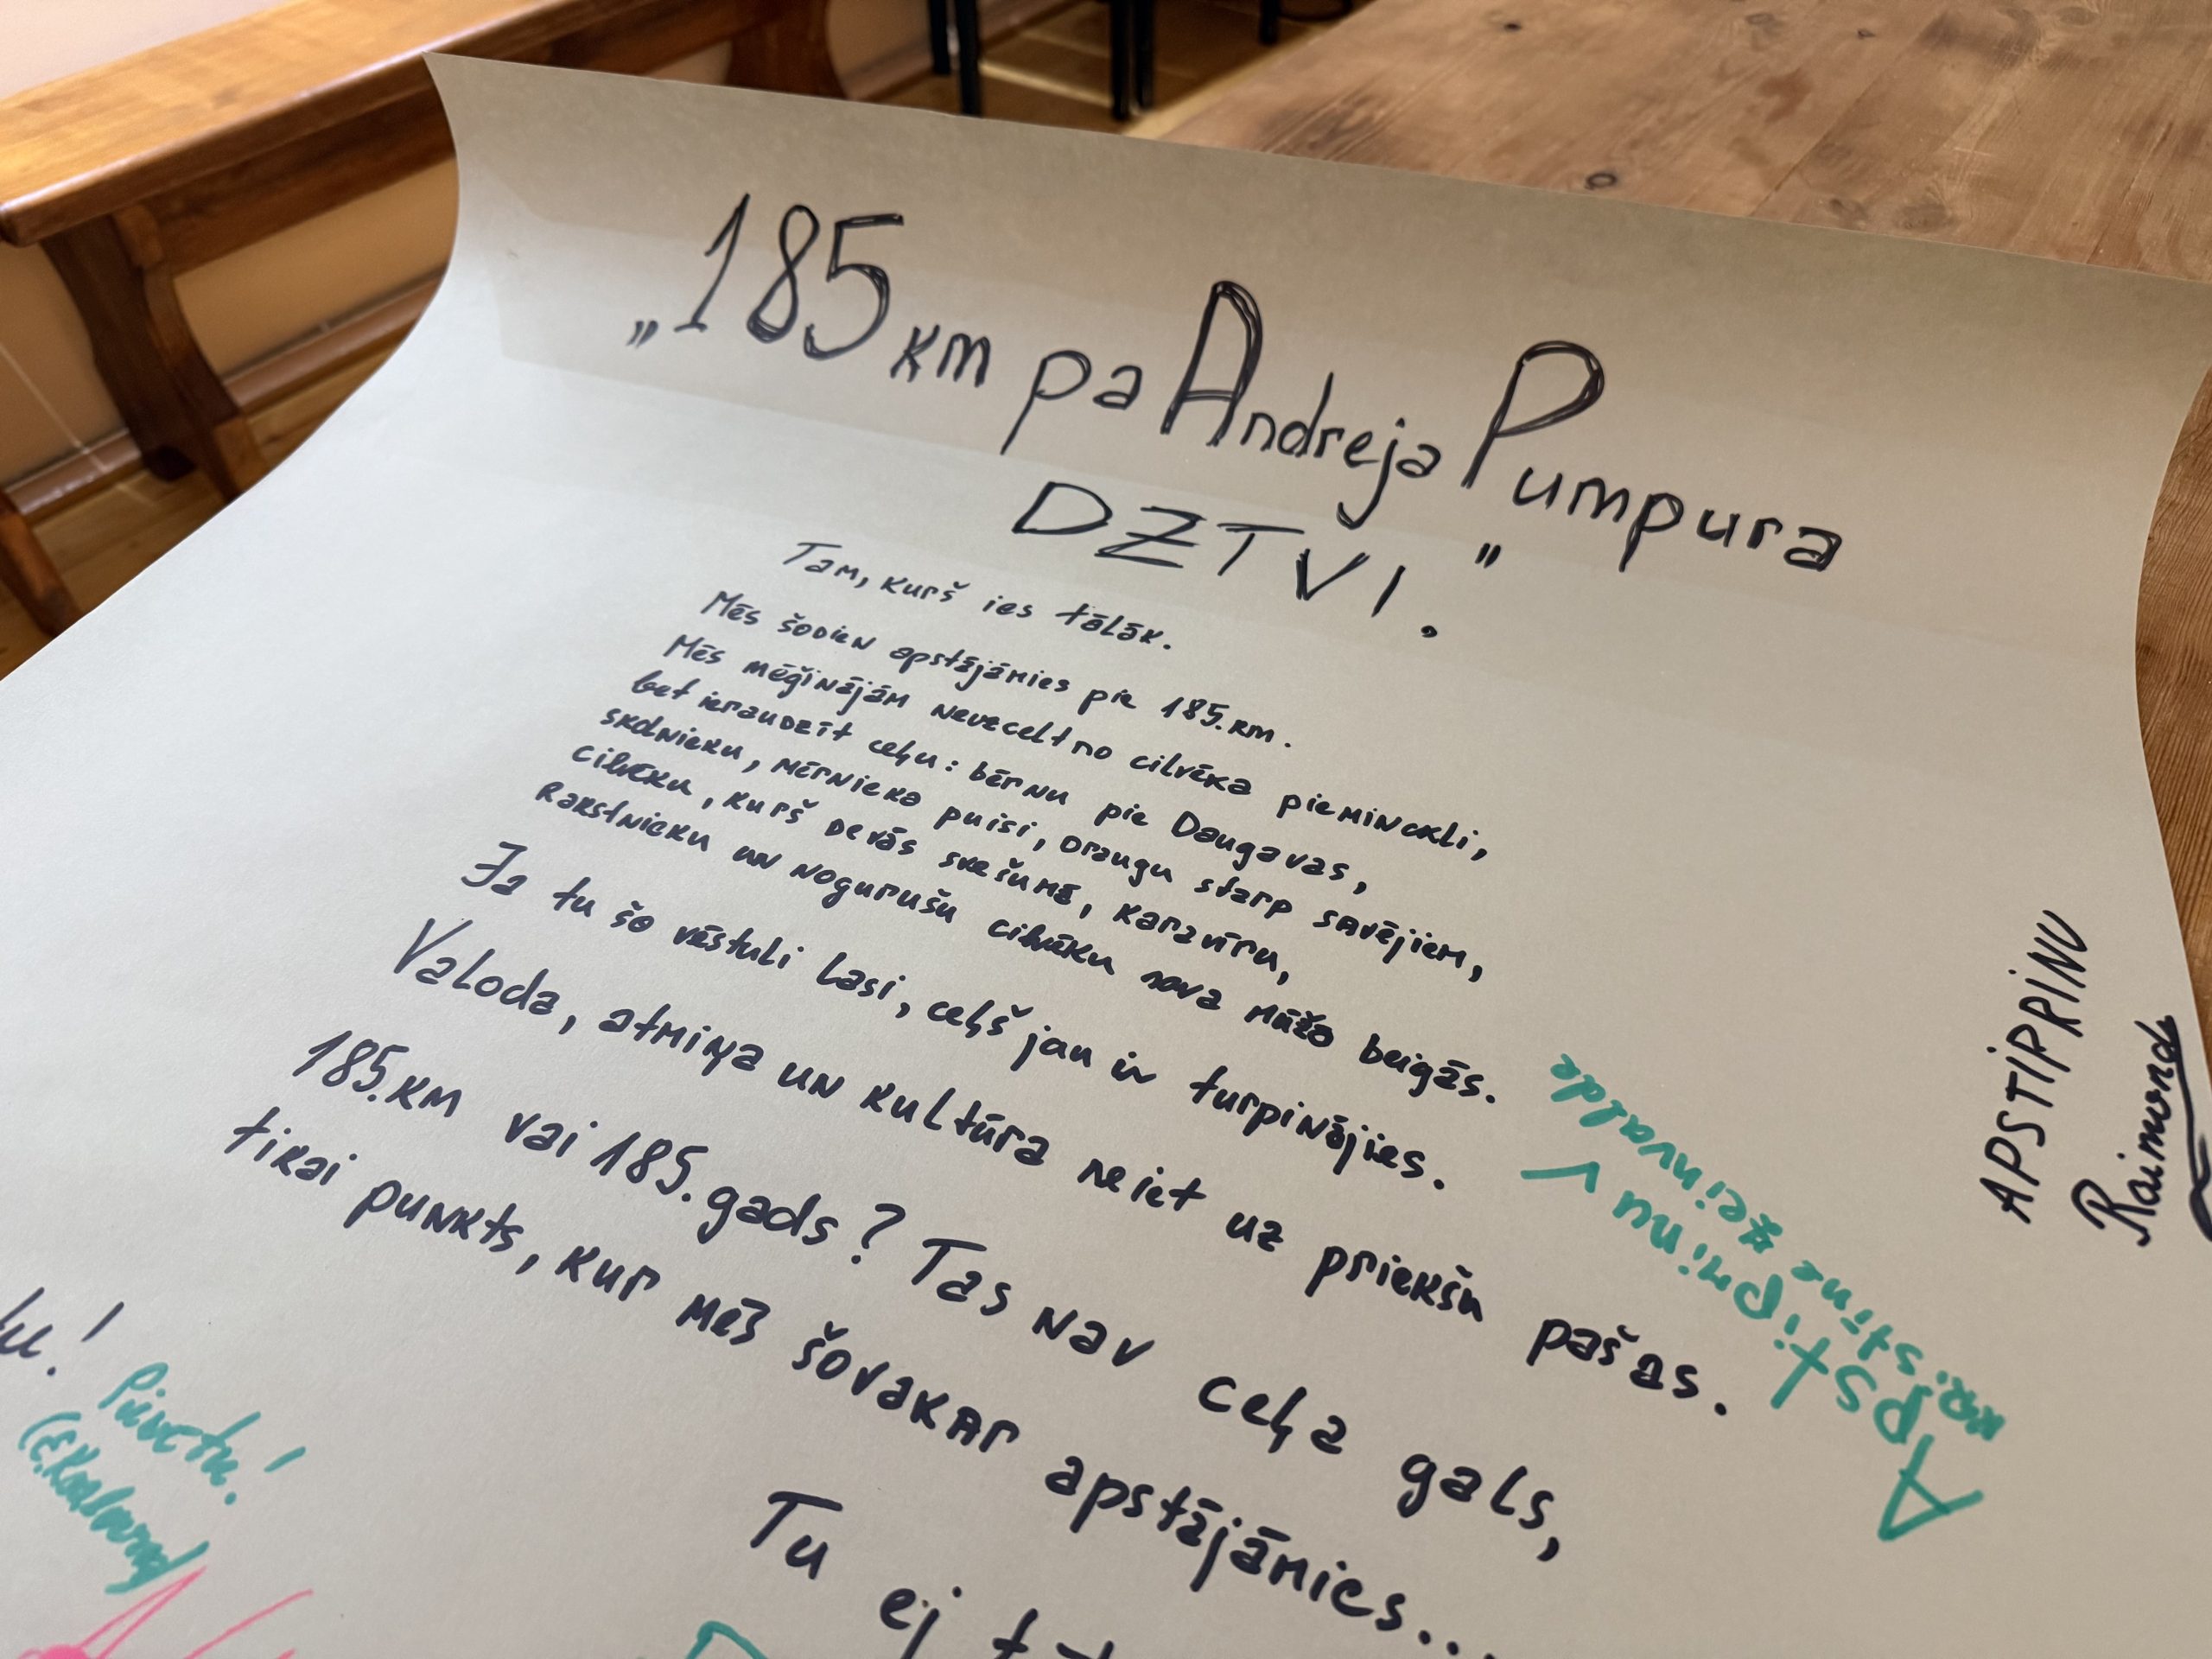 „185 km pa Andreja Pumpura
DZTVI."
Tam, kurš ies tālāk.
Mēs šodien apstājāmies pie 185.km.
Mēs mēģinājām neuzcelt no cilvēka pieminekli,
bet ieraudzīt ceļu: bērnu pie Daugavas,
skolnieku, mērnieka puisi, draugu starp savējiem,
cilvēku, kurš devās svešumā, karavīru,
Rakstnieku un nogurušu cilvēku sava mūža beigās.
Ja tu šo vēstuli lasi, ceļš jau ir turpinājies.
Valoda, atmiņa un kultūra neiet uz priekšu pašas.
185.km vai 185.gads? Tas nav ceļa gals,
tikai punkts, kur mēs šovakar apstājāmies...
Tu ej
APSTIPRINU
Raimonds
Apstipinu